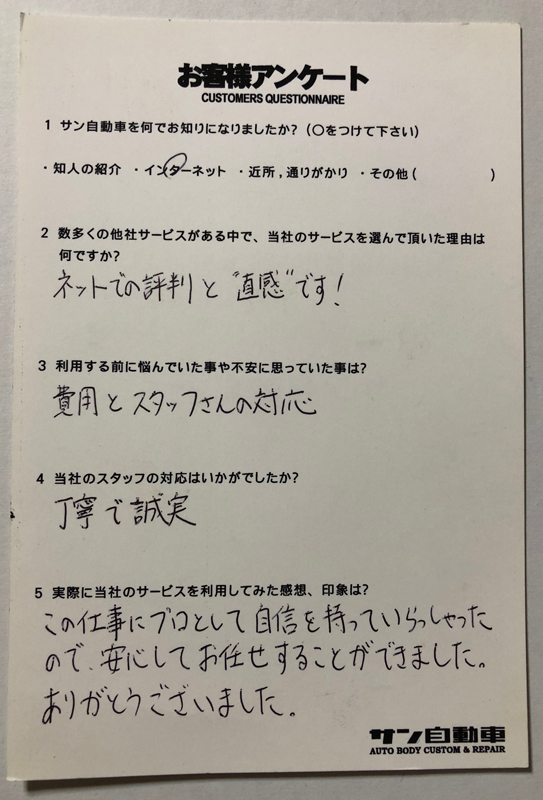 お客様アンケート
CUSTOMERS QUESTIONNAIRE
1 サン自動車を何でお知りになりましたか?(○をつけて下さい)
・知人の紹介 ・インターネット ・近所,通りがかり ・その他( )
2 数多くの他社サービスがある中で、当社のサービスを選んで頂いた理由は
何ですか?
ネットでの評判と"直感"です!
3 利用する前に悩んでいた事や不安に思っていた事は?
費用とスタッフさんの対応
4 当社のスタッフの対応はいかがでしたか?
丁寧で誠実
5 実際に当社のサービスを利用してみた感想、印象は?
この仕事にプロとして自信を持っていらっしゃった
ので、安心してお任せすることができました。
ありがとうございました。
サン自動車
AUTO BODY CUSTOM & REPAIR